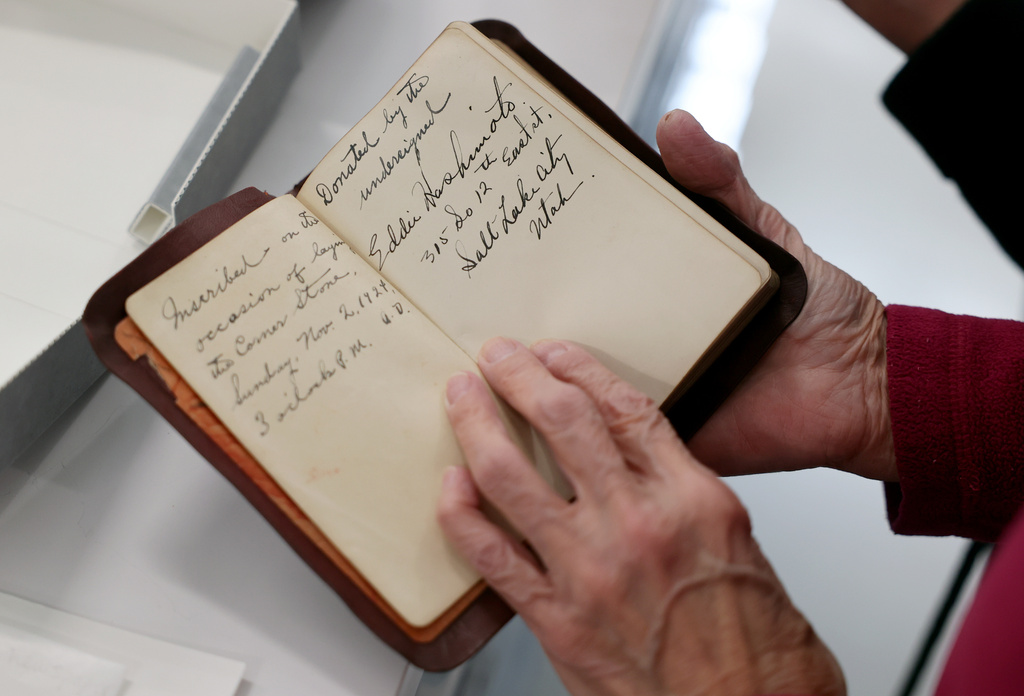 Inscribed on the
occasion of laying
the Corner Stone,
Sunday, Nov. 2, 1924,
A.D.
3 o'clock P.M.
Donated by the
undersigned
Eddie Hashimoto.
315 So 12th East st,
Salt Lake City
Utah.